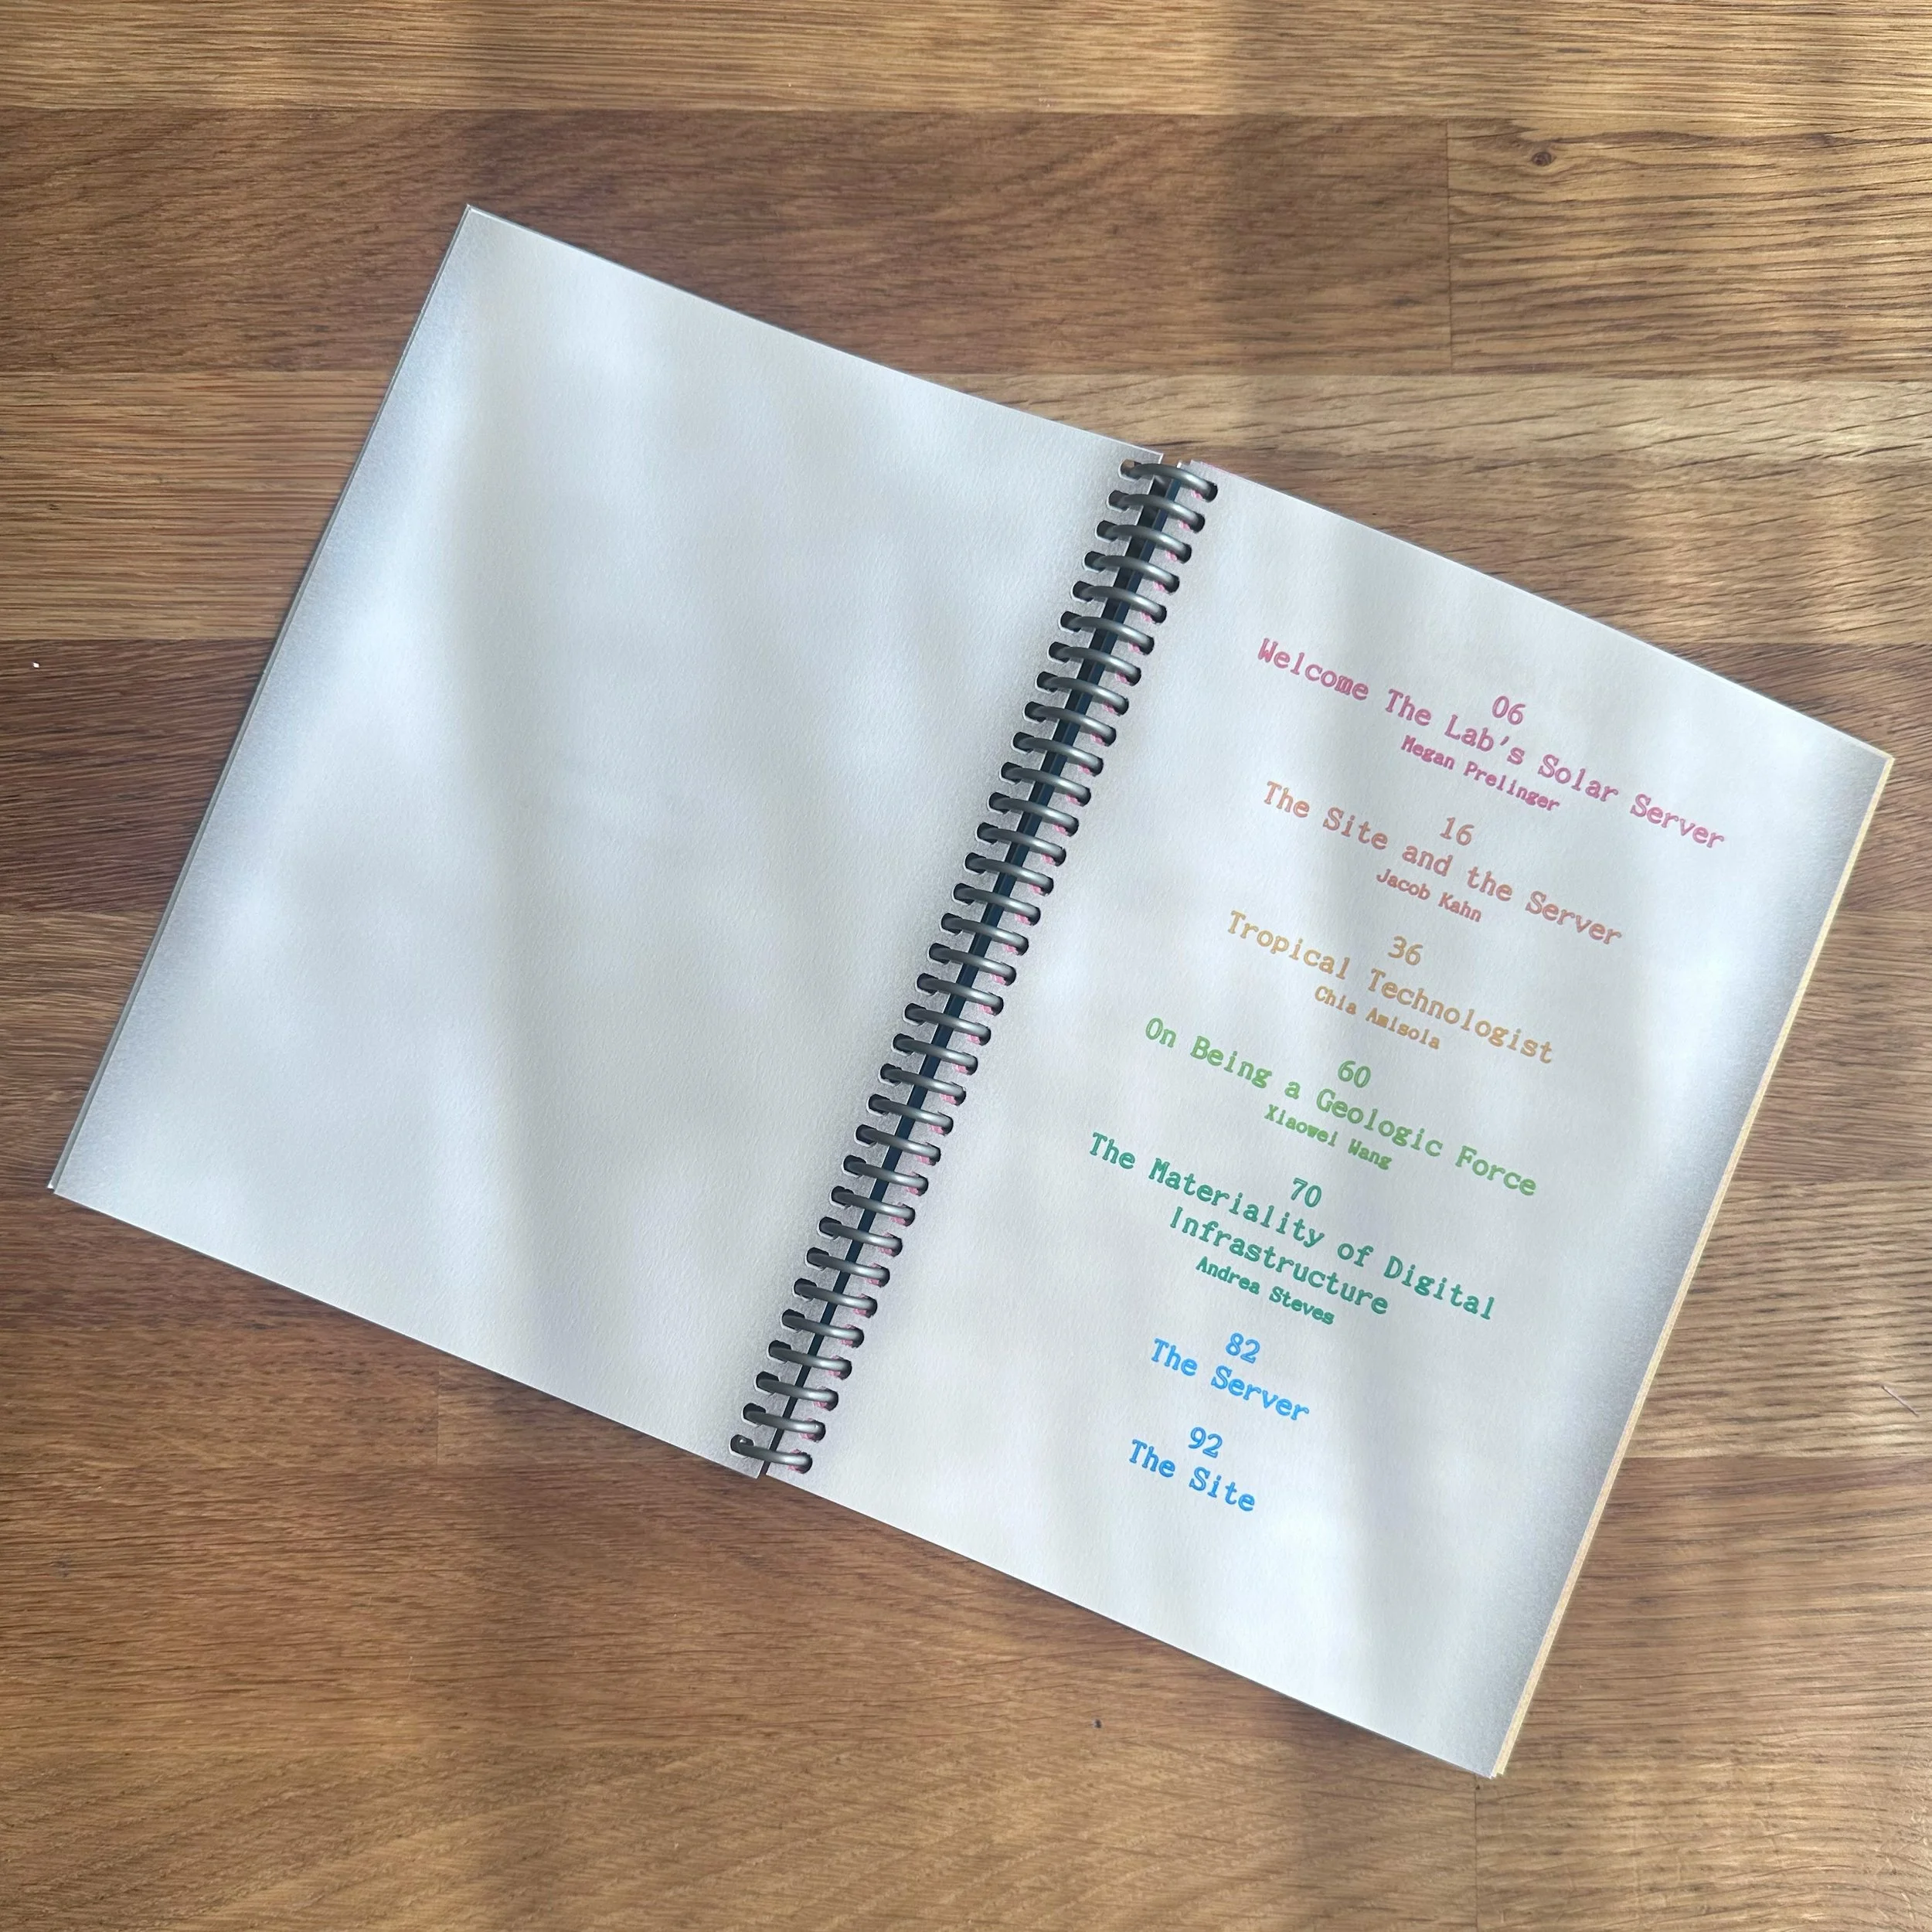 06
Welcome The Lab's Solar Server
Megan Prelinger
16
The Site and the Server
Jacob Kahn
36
Tropical Technologist
Chia Amisola
60
On Being a Geologic Force
Xiaowei Wang
70
The Materiality of Digital
Infrastructure
Andrea Steves
82
The Server
92
The Site